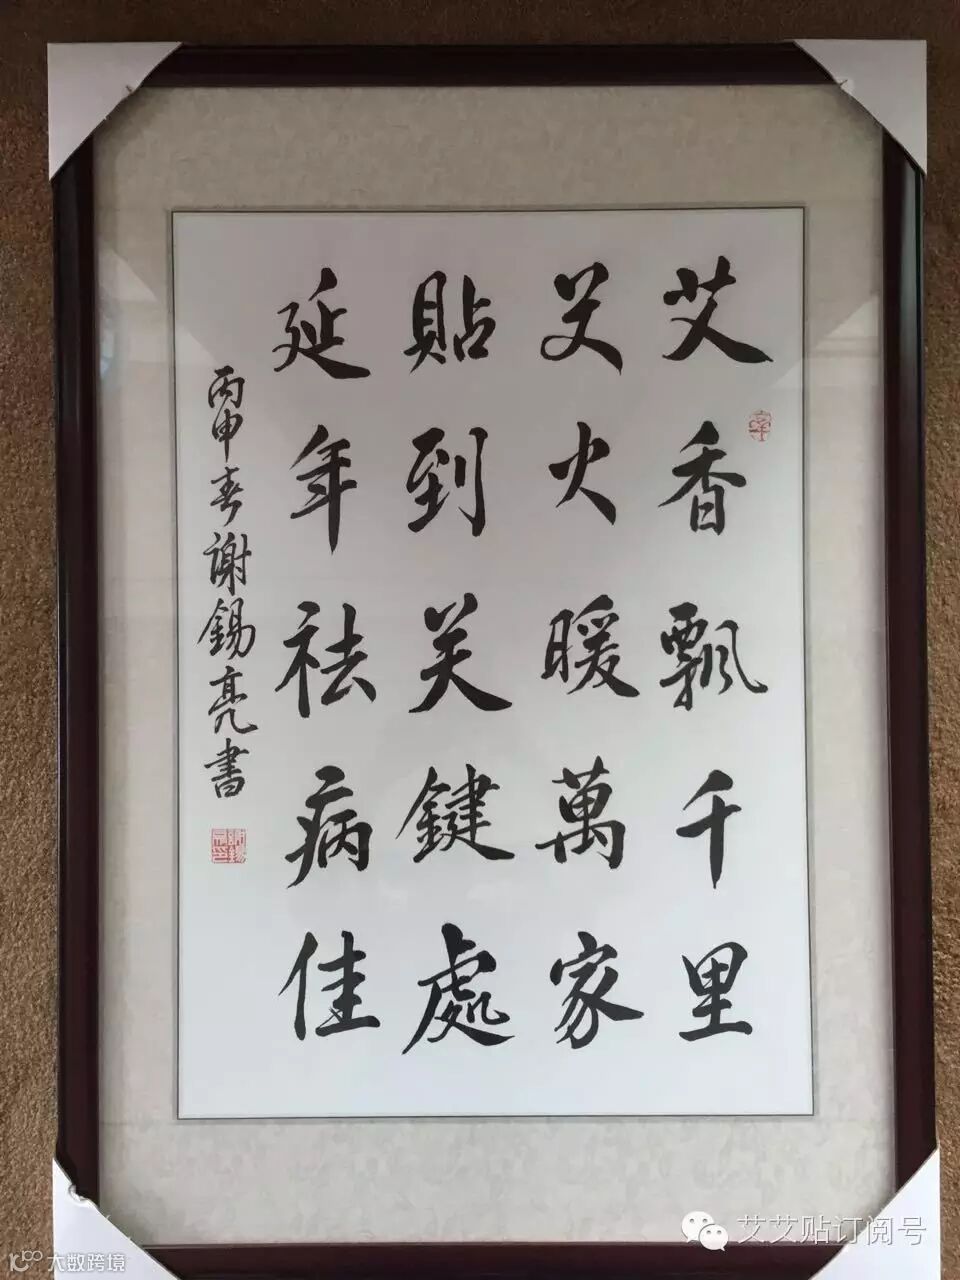 艾香飄千里
艾火暖萬家
貼到关鍵處
延年祛病佳
丙申春謝錫亮書
艾艾贴订阅号
大数跨境